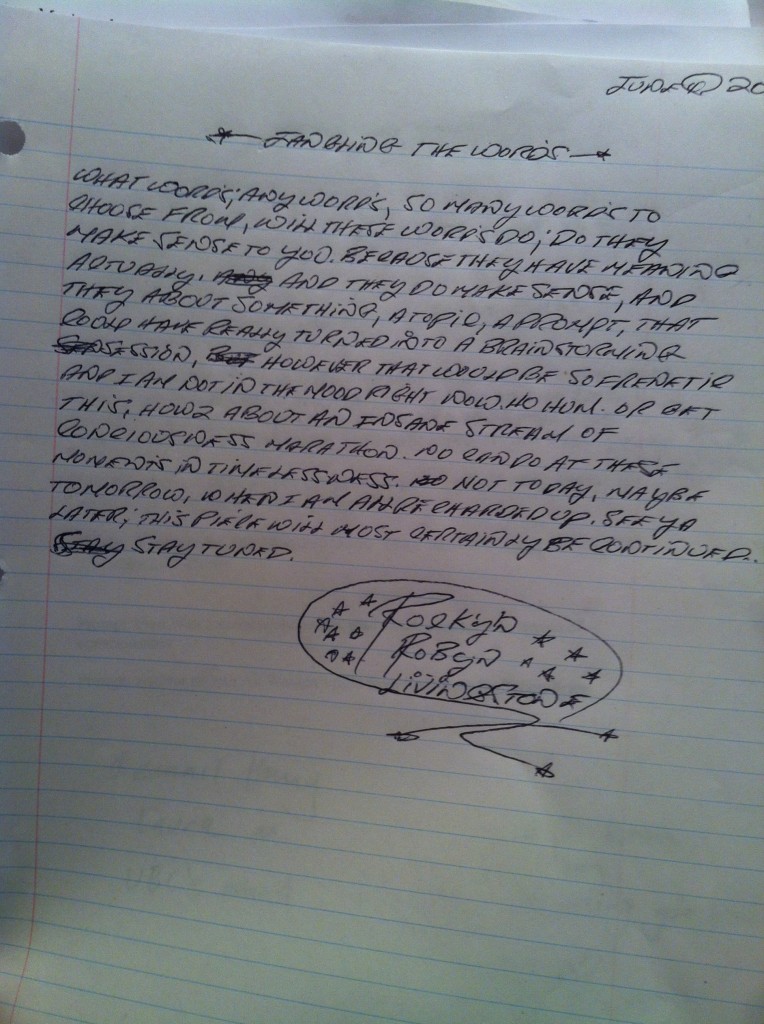 JUNE 20
THE WORDS
WHAT WORDS; ANY WORDS, SO MANY WORDS TO
CHOOSE FROM, WILL THESE WORDS DO; DO THEY
MAKE SENSE TO YOU. BECAUSE THEY HAVE MEANING
ACTUALLY. AND THEY DO MAKE SENSE, AND
THEY ABOUT SOMETHING, A TOPIC, A PROMPT, THAT
COULD HAVE REALLY TURNED INTO A BRAINSTORMING
SESSION, HOWEVER THAT WOULD BE SO FRENETIC
AND I AM NOT IN THE MOOD RIGHT NOW. HO HUM. OR GET
THIS, HOW ABOUT AN INSANE STREAM OF
CONCIOUSNESS MARATHON. NO CAN DO AT THESE
MOMENTS IN TIMELESSNESS. NOT TODAY, MAYBE
TOMORROW, WHEN I AM ALL RECHARDED UP. SEE YA
LATER; THIS PIECE WILL MOST CERTAINLY BE CONTINUED..
STAY TUNED.
ROCKYN
ROBYN
LIVINGSTONE